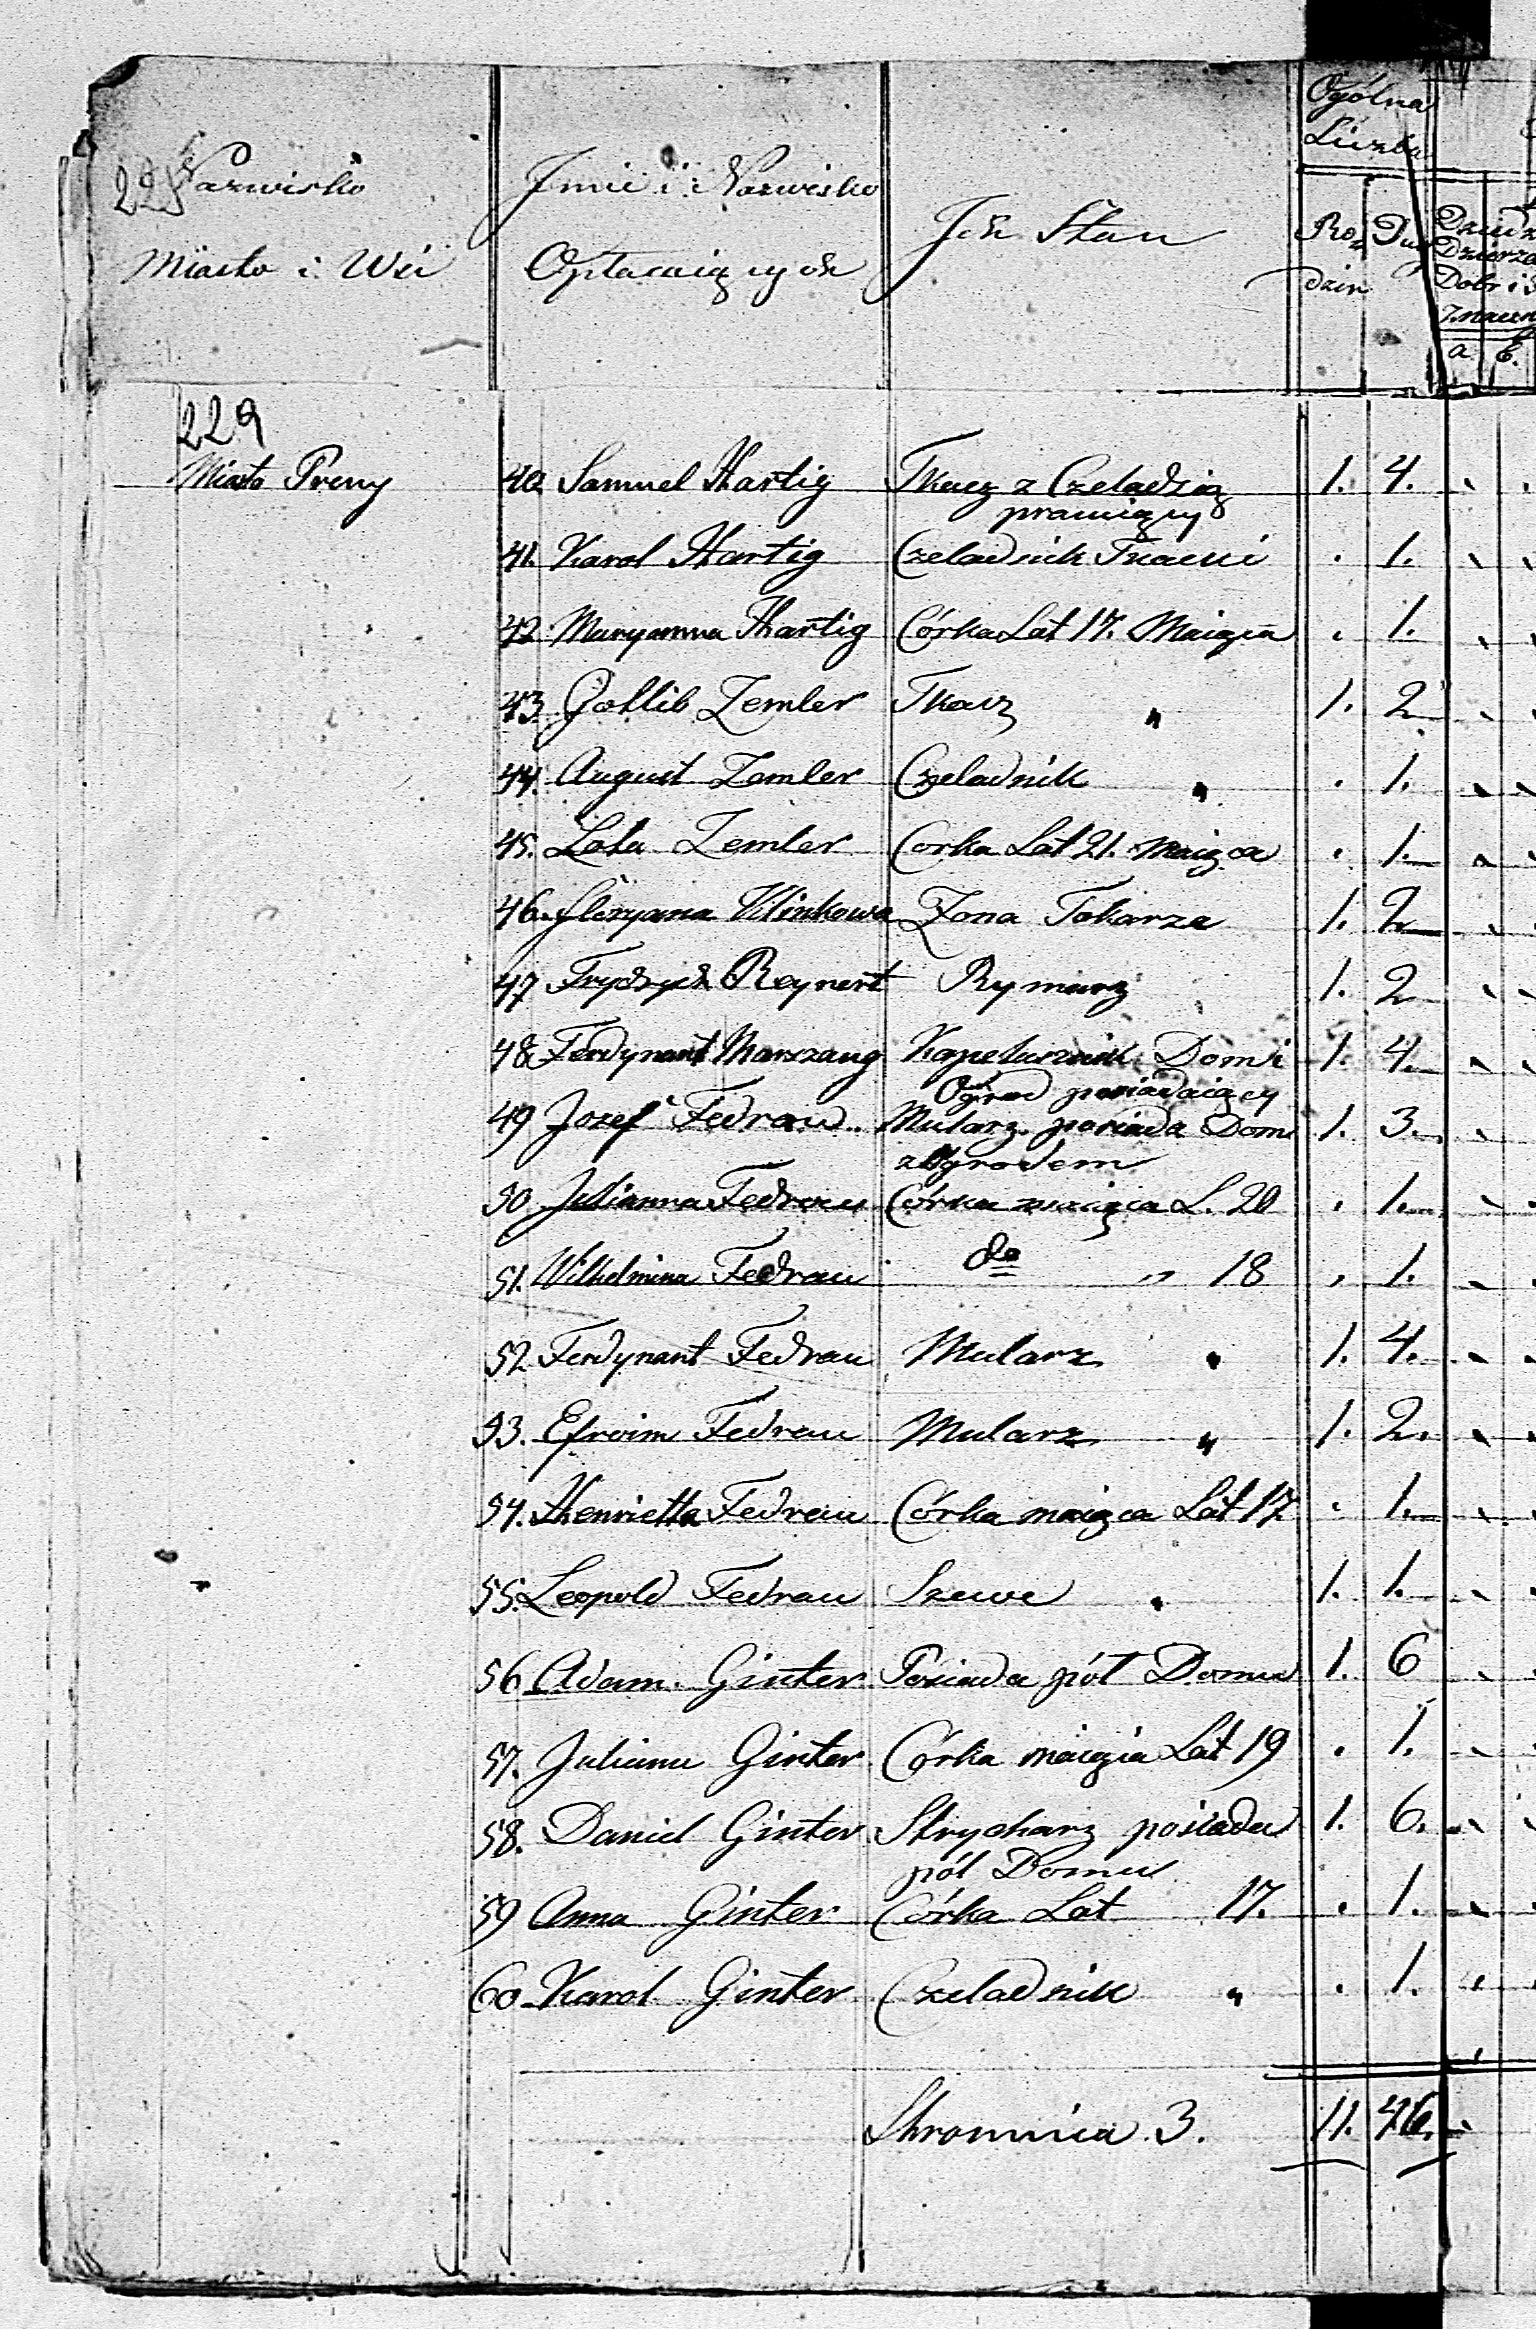 Ogólna
Liczba
225 Nazwisko
Miasto i Wsi
Jmie i Nazwisko
Opłacaiących
Jch Stan
Ro
dzin
Du
Dzierza
Dobr i
a b.
229
Miasto Preny 40 Samuel Hartig Tkacz z Czeladzią 1. 4.
pracuiący
41. Karol Hartig Czeladnik Tkacki . 1.
42 Maryanna Hartig Córka Lat 17. Maiąca . 1.
43 Gottlib Zemler Tkacz " 1. 2
44. August Zemler Czeladnik " . 1.
45. Lota Zemler Corka Lat 21. Maiąca . 1.
46. Floryana Klinkowa Zona Tokarza 1. 2
47 Frydrych Reynert Rymarz 1. 2
48. Ferdynant Marszang Kapelusznik Dom i 1. 4.
Ogrod posiadaiący
49 Jozef Fedrau Mularz posiada Dom 1. 3.
z Ogrodem
50 Julianna Fedrau Córka maiąca L. 20 . 1.
51. Wilhelmina Fedrau do " 18 . 1.
52 Ferdynant Fedrau Mularz " 1. 4.
53. Efroim Fedrau Mularz " 1. 2.
54. Henrietta Fedrau Córka maiąca Lat 17 . 1.
55. Leopold Fedrau Szewc " 1. 1.
56 Adam Ginter Posiada pół Domu 1. 6
57. Julianu Ginter Córka maiąca Lat 19 . 1.
58. Daniel Ginter Strycharz posiada 1. 6.
pół Domu
59 Anna Ginter Córka Lat 17. . 1.
60 Karol Ginter Czeladnik " . 1.
Stronnica 3. 11. 46.